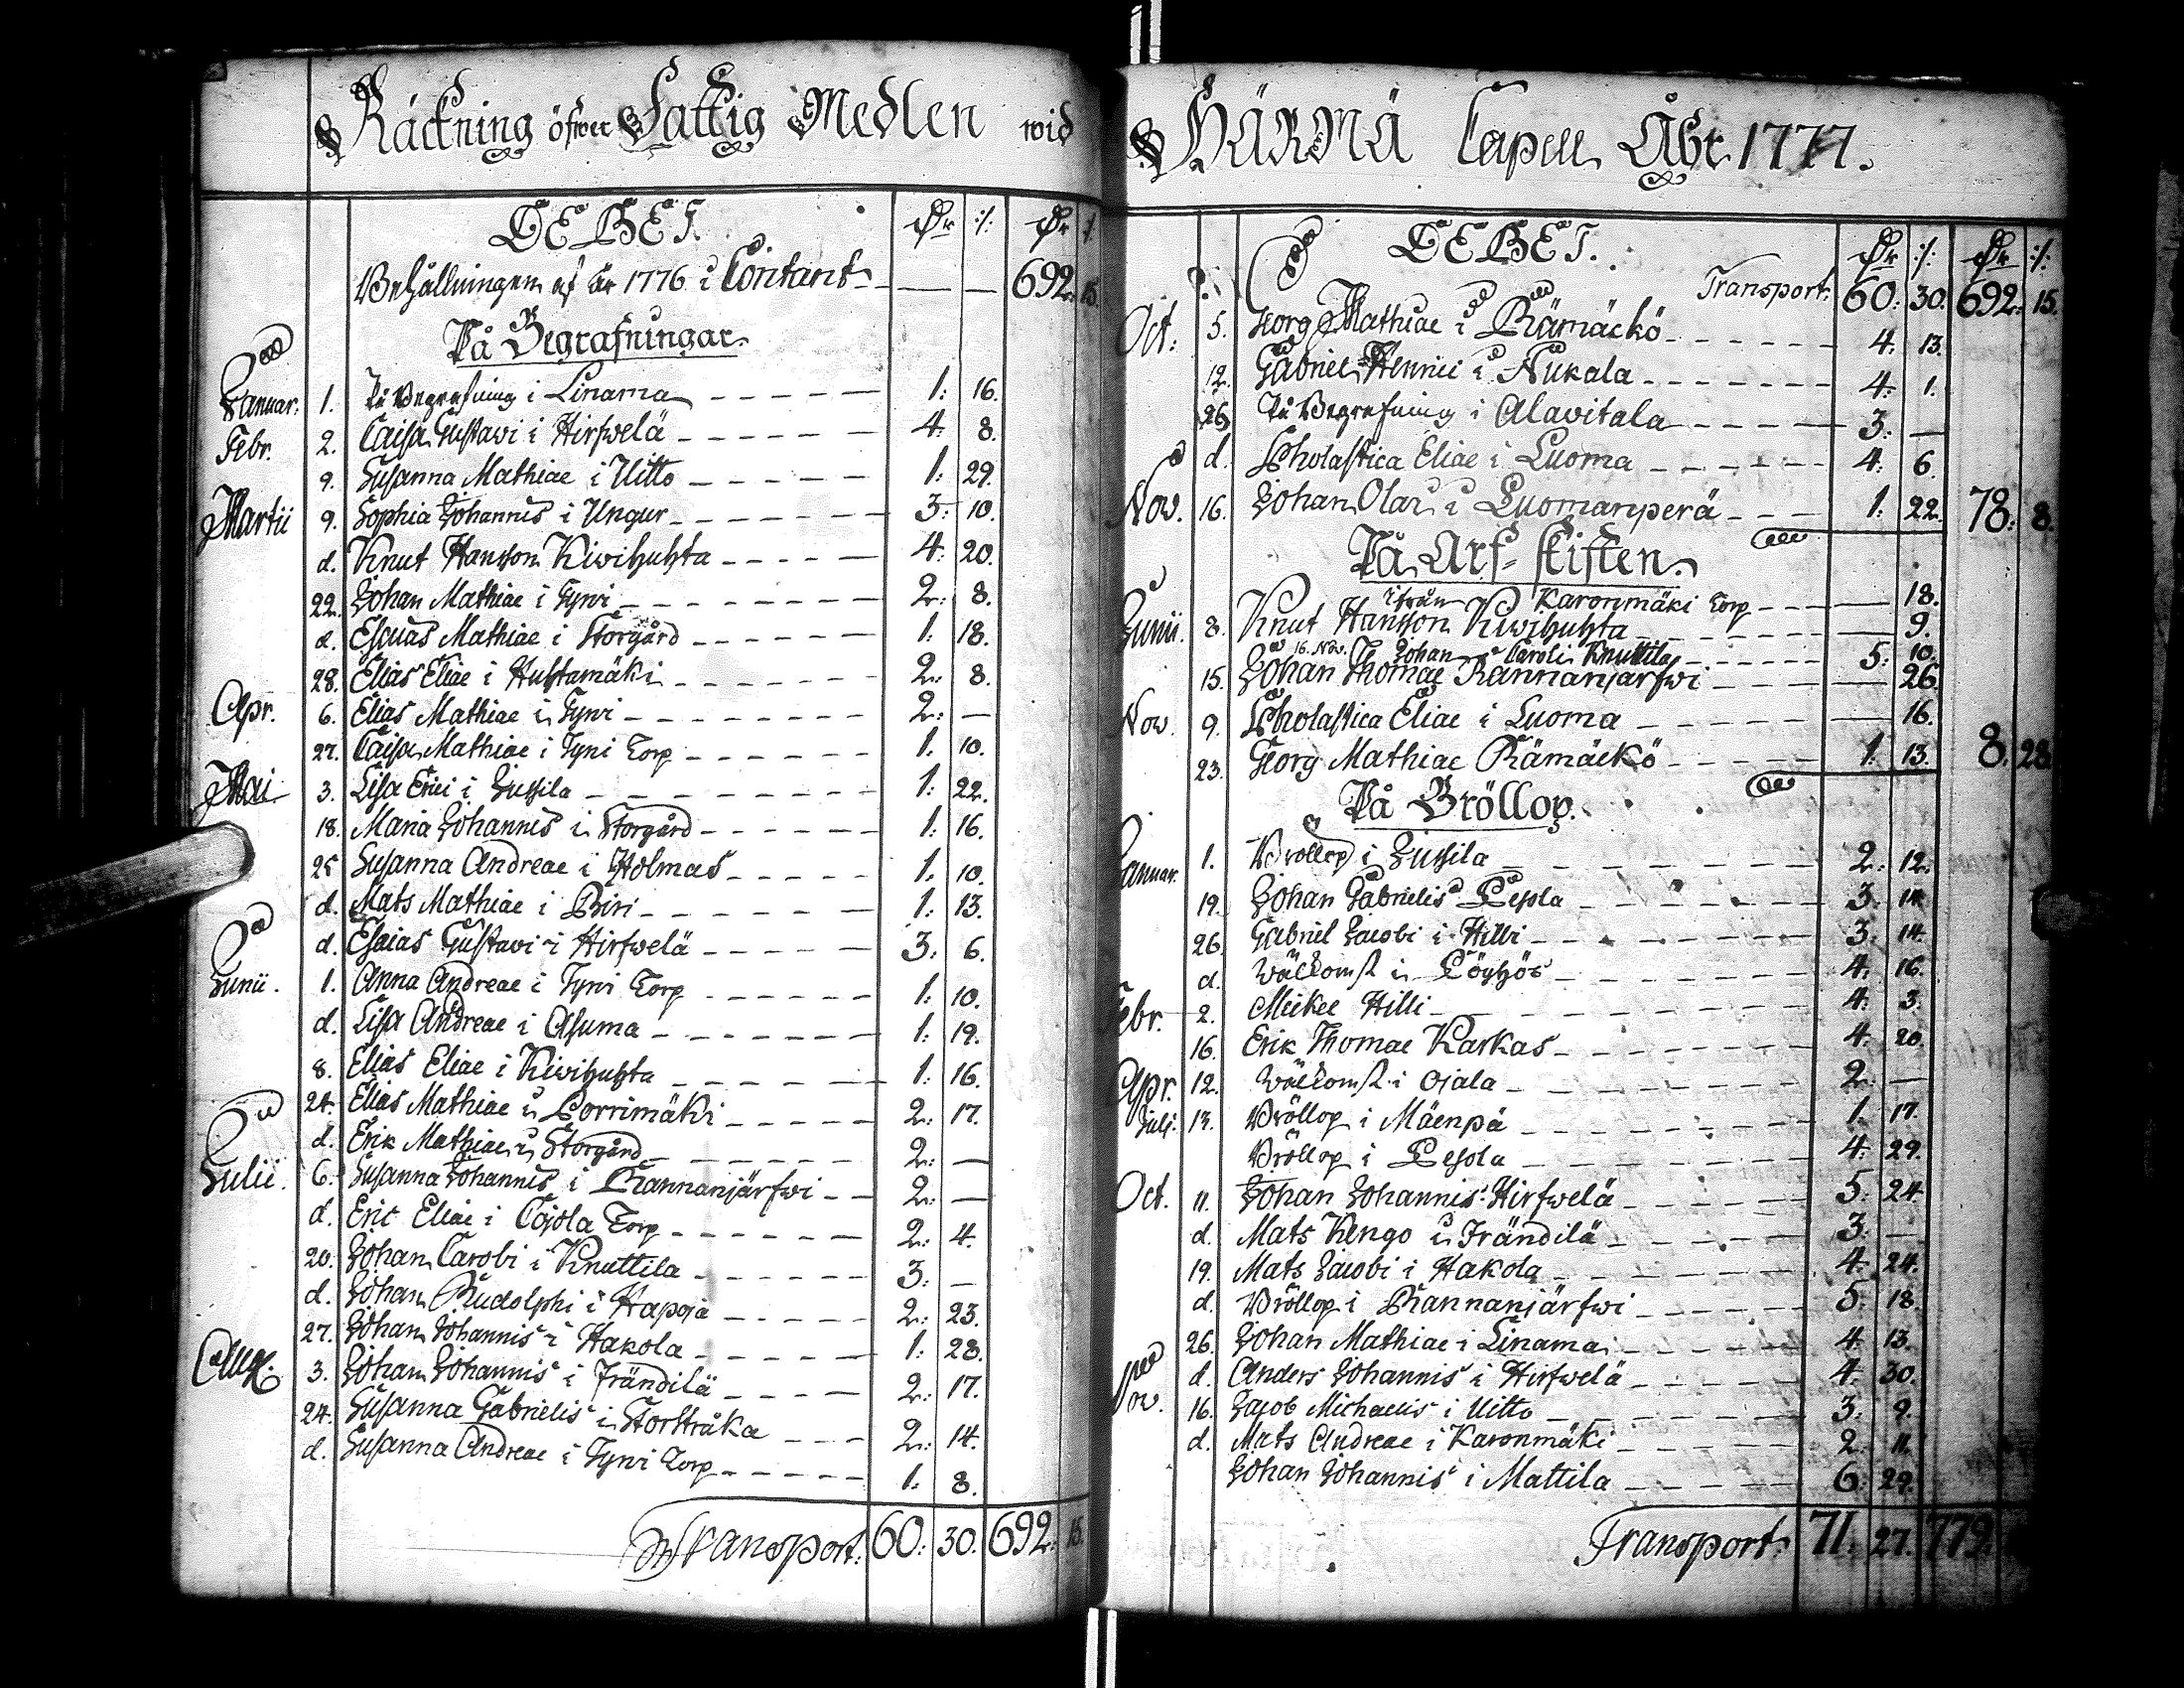 Räckning öfwer Fattig Medlen wid
DEBET. Dr :/: Dr :/:
Behållningen af år 1776 i Contant 692: 15.
På Begrafningar.
Januar. 1. På Begrafning i Linama 1: 16.
Febr. 2. Caisa Gustawi i Hirfwelä 4: 8.
9. Susanna Mathiae i Uitto 1: 29.
Martii 9. Sophia Johannis i Ungur 3: 10.
d. Knut Hansson Kiwihuhta 4: 20.
22. Johan Mathiae i Tyni 2: 8.
d. Esaias Mathiae i Storgård 1: 18.
28. Elias Eliae i Huhtamäki 2: 8.
Apr. 6. Elias Mathiae i Tyni 2: —
27. Caisa Mathiae i Tyni Torp 1: 10.
Mai 3. Lisa Erici i Jussila 1: 22.
18. Maria Johannis i Storgård 1: 16.
25 Susanna Andreae i Holmas 1: 10.
d. Mats Mathiae i Biri 1: 13.
d. Esaias Gustawi i Hirfwelä 3: 6.
Junii. 1. Anna Andreae i Tyni Torp 1: 10.
d. Lisa Andreae i Asuma 1: 19.
8. Elias Eliae i Kiwihuhta 1: 16.
24. Elias Mathiae i Porrimäki 2: 17.
d. Erik Mathiae i Storgård 2: —
Julii. 6. Susanna Johannis i Rannanjärfwi 2: —
d. Eric Eliae i Torp 2: 4.
20. Johan Caroli i Knuttila 3: —
d. Johan Rudolphi i Hapoja 2: 23.
27. Johan Johannis i Hakola 1: 28.
Aug. 3. Johan Johannis i Frändilä 2: 17.
24. Susanna Gabrielis i Storstråka 2: 14.
d. Susanna Andreae i Tyni Torp 1: 8.
Transport. 60: 30. 692: 15.
HÄRMÄ Capell Åhr 1777.
DEBET. Dr :/: Dr :/:
Transport: 60: 30. 692: 15.
Oct: 5. Georg Mathiae i Rämäckö 4: 13.
12. Gabriel Henrici i Nukala 4: 1.
26. På Begrafning i Alawitala 3: —
d. Scholastica Eliae i Luoma 4: 6.
Nov. 16. Johan Olai i Luomanperä 1: 22. 78: 8.
På Arf-skiften.
ifrån Karonmäki Torp 18.
Junii. 8. Knut Hansson Kiwihuhta 9.
16. Nov. Johan Caroli Knuttila 5: 10.
15. Johan Thomae Rannanjärfwi 26.
Nov. 9. Scholastica Eliae i Luoma 16.
23. Georg Mathiae Rämäckö 1: 13. 8: 28
På Bröllop.
Januar. 1. Bröllop i Jussila 2: 12.
19. Johan Gabrielis Pesola 3: 14.
26. Gabriel Jacobi i Hilli 3: 14.
d. Wälkomst i Löyhös 4: 16.
Febr. 2. Mickel Hilli 4: 3.
16. Erik Thomae Karkas 4: 20.
Apr. 12. Wälkomst i Ojala 2: —
Julj. 13. Bröllop i Mäenpä 1: 17.
Bröllop i Pesola 4: 29.
Oct. 11. Johan Johannis Hirfwelä 5: 24
d. Mats Kengo i Frändilä 3: —
19. Mats Jacobi i Hakola 4: 24.
d. Bröllop i Rannanjärfwi 5: 18.
26. Johan Mathiae i Linama 4: 13.
d. Anders Johannis i Hirfwelä 4: 30.
Nov. 16. Jacob Michaelis i Uitto 3: 9.
d. Mats Andreae i Karonmäki 2: 11.
Johan Johannis i Mattila 6: 29.
Transport: 71: 27. 779: